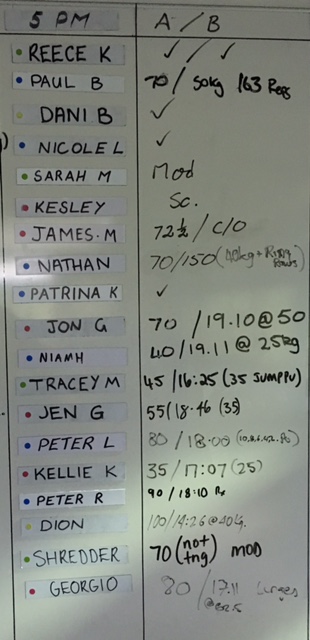 5 PM A / B
REECE K ✓ / ✓
PAUL B 70 / 50kg /63 Reps
DANI B ✓
) NICOLE L ✓
SARAH M Mod
KESLEY Sc.
JAMES.M 72½ / C/O
NATHAN 70/150 (40kg + Ring Rows)
PATRINA K ✓
JON G 70 / 19.10 @ 50
NIAMH 40/19.11 @ 25kg
TRACEY M 45 /16:25 (35 JUMPPU)
JEN G 55/18.46 (35)
PETER L 80 / 18:00
KELLIE K 35 / 17:07 (25)
PETER R 90 / 18:10 Rx
DION 100/14:26 @ 40kg.
SHREDDER 70 (not tng) MOD
GEORGIO 80 / 17.11 Lunges